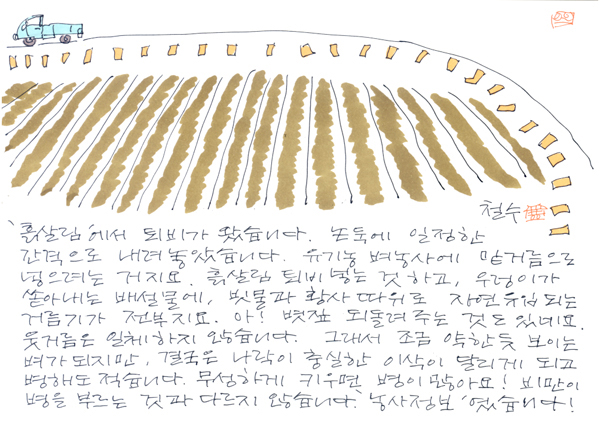 철수
'흙살림'에서 퇴비가 왔습니다. 논둑에 일정한
간격으로 내려놓았습니다. 유기농 벼농사에 밑거름으로
넣으려는 거지요. 흙살림 퇴비 넣는 것하고, 우렁이가
쏟아내는 배설물에, 빗물과 황사 따위로 자연유입되는
거름기가 전부지요. 아! 볏짚 되돌려 주는 것도 있네요.
웃거름은 일체하지 않습니다. 그래서 조금 약한듯 보이는
벼가 되지만, 결국은 나락이 충실한 이삭이 달리게 되고
병해도 적습니다. 무성하게 키우면 병이 많아요! 비만이
병을 부르는 것과 다르지 않습니다. '농사정보'였습니다!